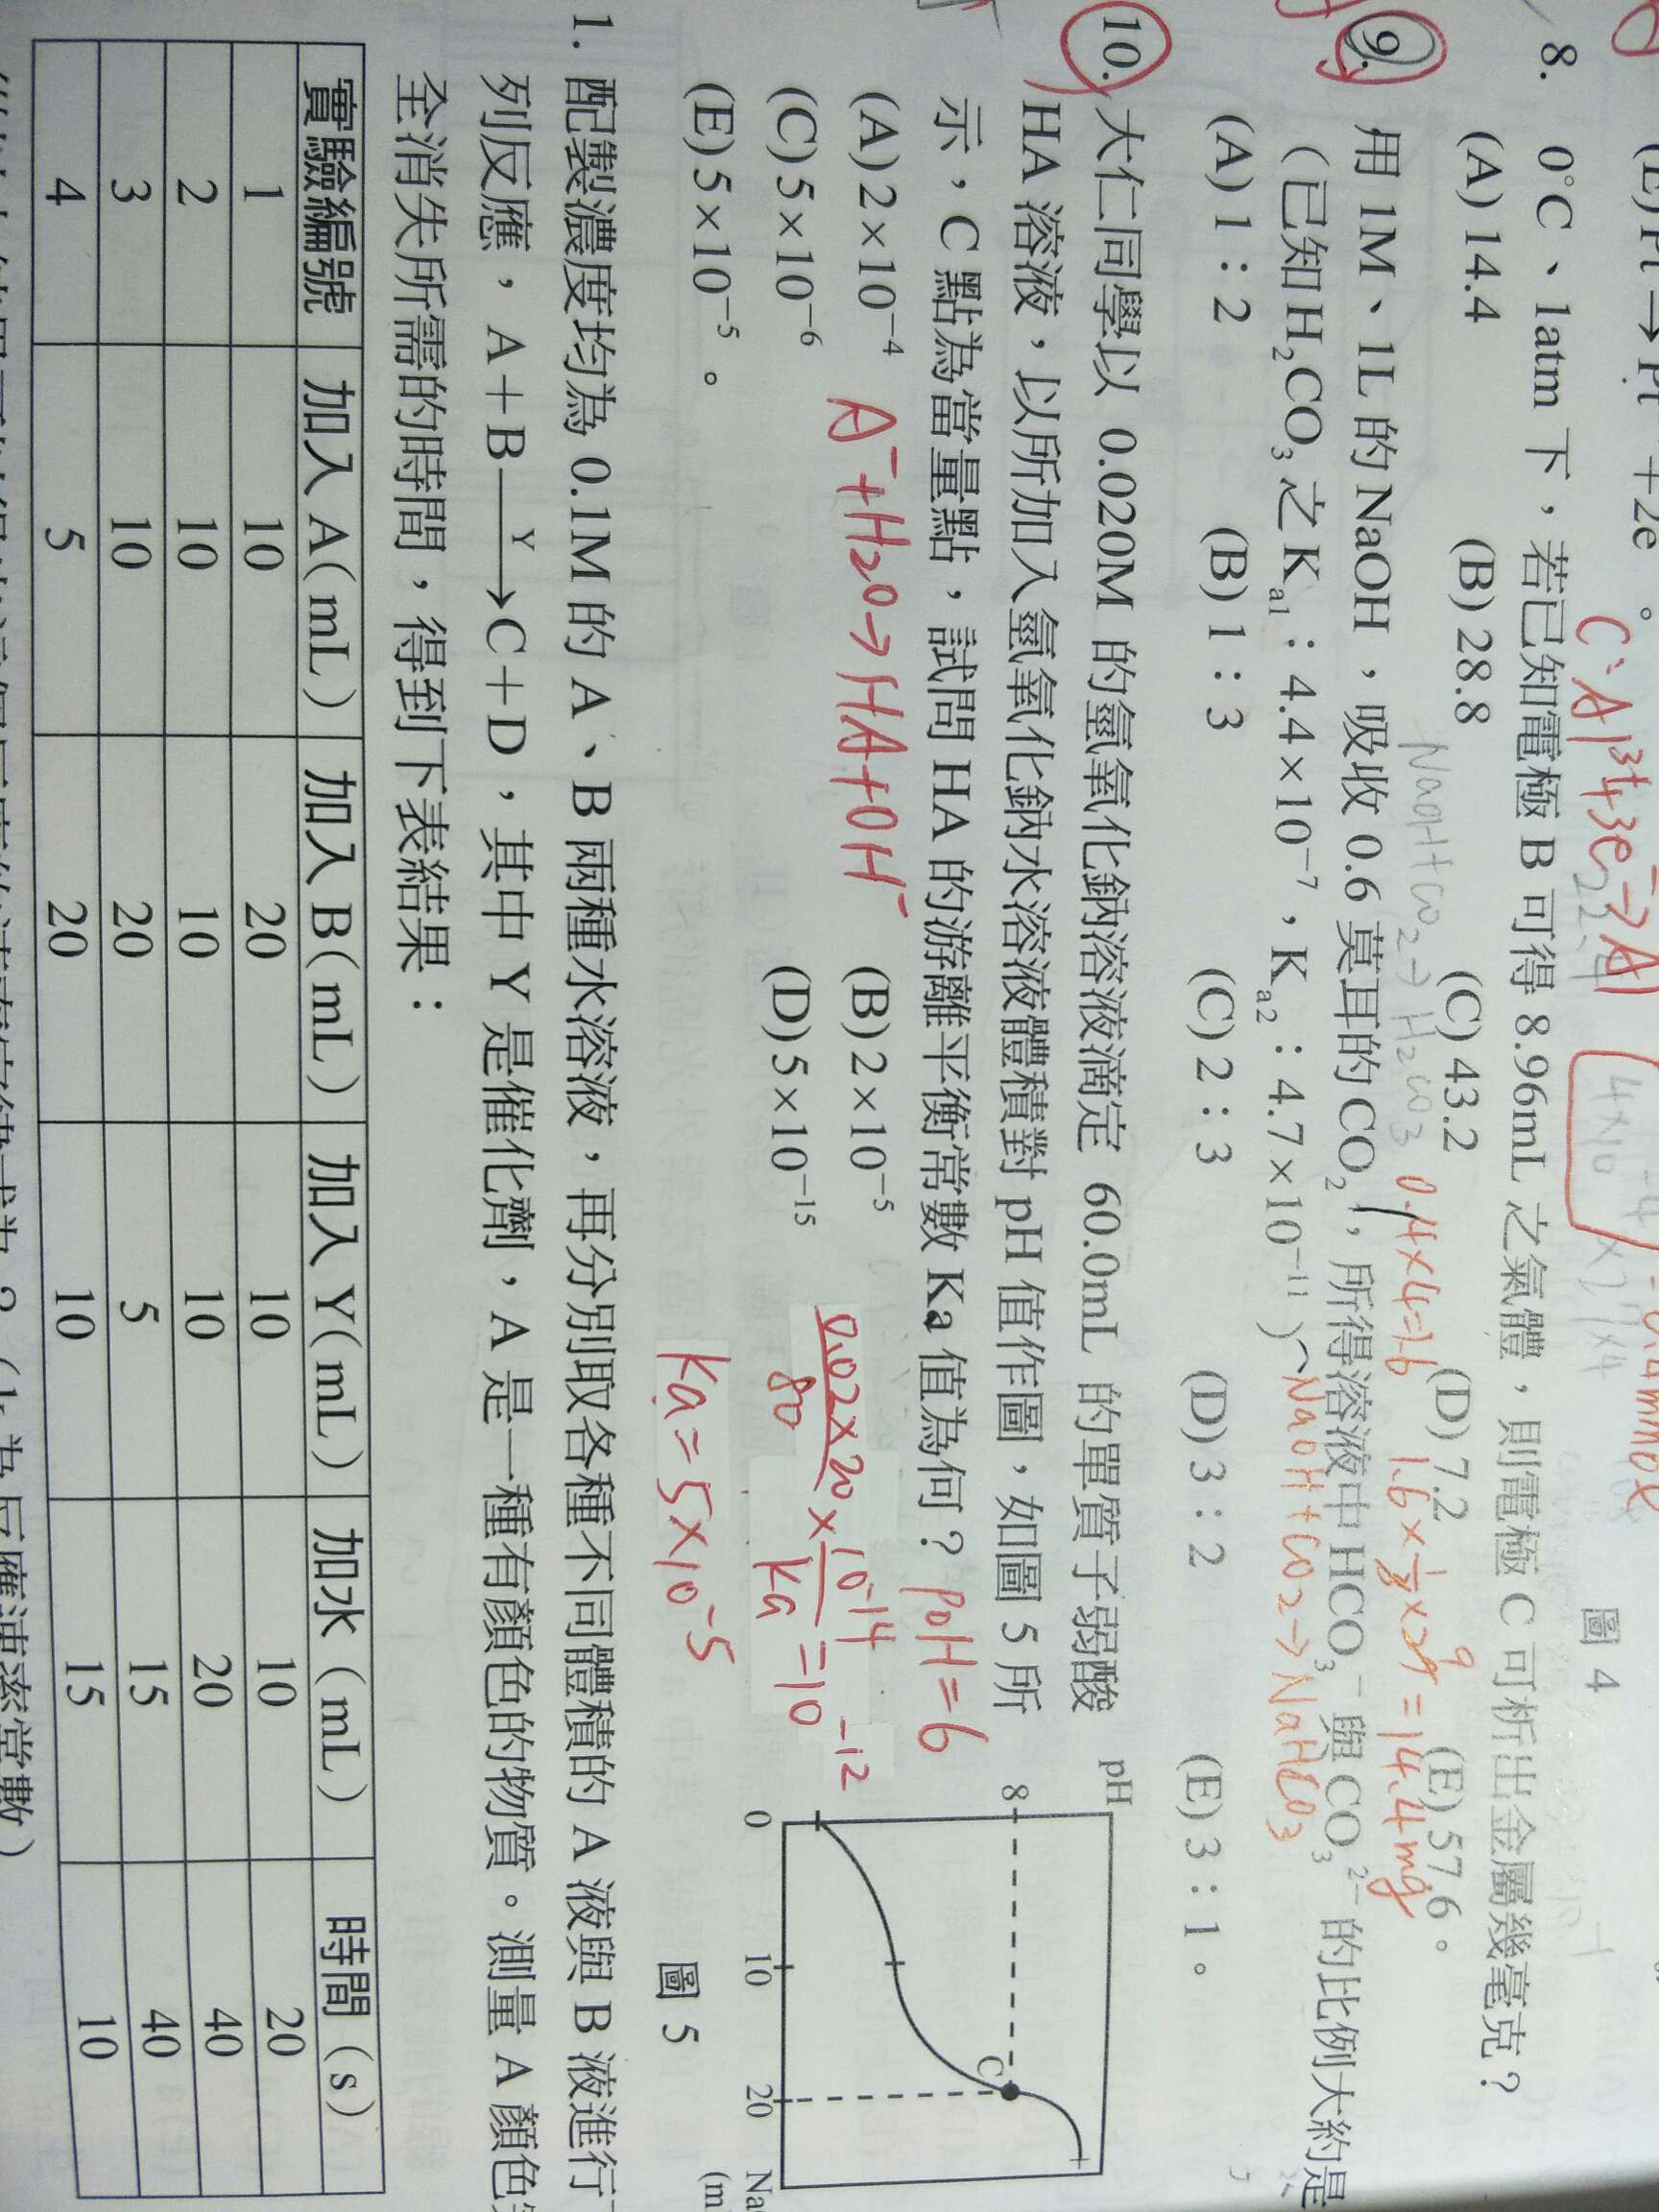 (E) Pt → Pt + 2e⁻。
C、Al³⁺+3e⁻→Al
圖 4
8. 0°C、1atm 下，若已知電極 B 可得 8.96mL 之氣體，則電極 C 可析出金屬幾毫克？
(A) 14.4 (B) 28.8 (C) 43.2 (D) 7.2 (E) 57.6。
0.4×4=1.6 1.6×1/3×27=14.4mg
NaOH+CO₂→H₂CO₃
9. 用 1M、1L 的 NaOH，吸收 0.6 莫耳的 CO₂，所得溶液中 HCO₃⁻ 與 CO₃²⁻ 的比例大約是
（已知 H₂CO₃ 之 Kₐ₁：4.4×10⁻⁷，Kₐ₂：4.7×10⁻¹¹）
NaOH+CO₂→NaHCO₃
(A) 1：2 (B) 1：3 (C) 2：3 (D) 3：2 (E) 3：1。
10. 大仁同學以 0.020M 的氫氧化鈉溶液滴定 60.0mL 的單質子弱酸
HA 溶液，以所加入氫氧化鈉水溶液體積對 pH 值作圖，如圖 5 所
示，C 點為當量點，試問 HA 的游離平衡常數 Ka 值為何？
pOH=6
(A) 2×10⁻⁴ (B) 2×10⁻⁵
(C) 5×10⁻⁶ (D) 5×10⁻¹⁵
(E) 5×10⁻⁵。
A⁻+H₂O→HA+OH⁻
0.02×20/80 × 10⁻¹⁴/Ka =10⁻¹²
Ka=5×10⁻⁵
pH
8
C
0 10 20
圖 5
1. 配製濃度均為 0.1M 的 A、B 兩種水溶液，再分別取各種不同體積的 A 液與 B 液進行
列反應，A＋B —Y→ C＋D，其中 Y 是催化劑，A 是一種有顏色的物質。測量 A 顏色
全消失所需的時間，得到下表結果：
實驗編號 加入 A（mL） 加入 B（mL） 加入 Y（mL） 加水（mL） 時間（s）
1 10 20 10 10 20
2 10 10 10 20 40
3 10 20 5 15 40
4 5 20 10 15 10